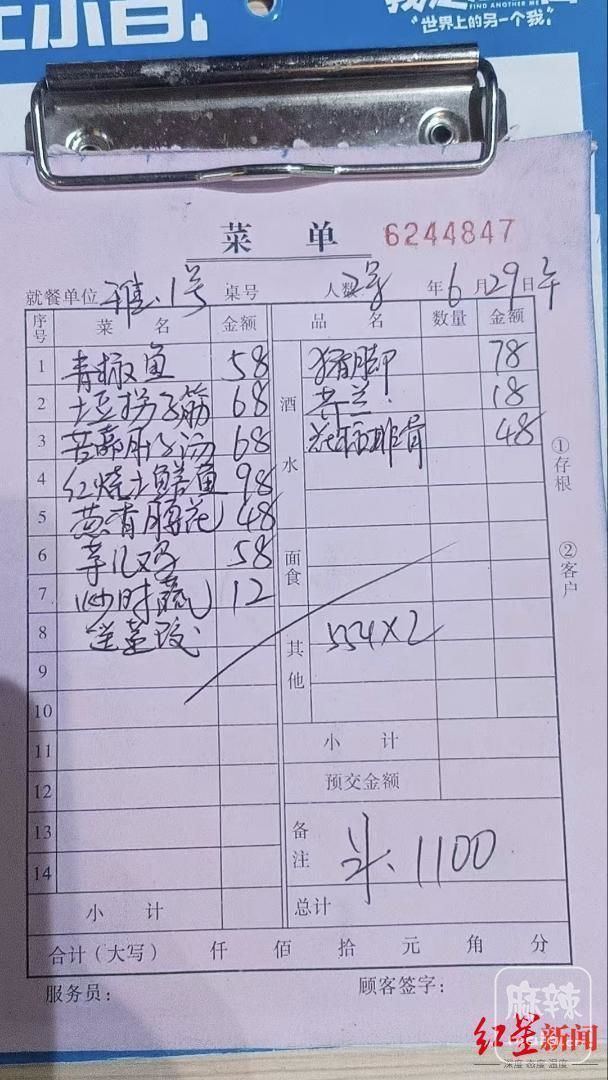 FIND ANOTHER ME
“世界上的另一个我”
菜 单 6244847
就餐单位 雅.1号 桌号 人数 年6月29日午
序号 菜 名 金额 品 名 数量 金额
1 青椒鱼 58 酒水 猪脚 78
2 土豆拐子筋 68 芥兰 18
3 苦蒿 汤 68 排骨 48
4 红烧土鳝鱼 98
5 葱香腰花 48
6 芋儿鸡 58 面食
7 炒时蔬 12
8 送 其他 554X2
9
10
11 小 计
12 预交金额
13 备注 1100
14
小 计 总计
合计(大写) 仟 佰 拾 元 角 分
服务员: 顾客签字:
①存根
②客户
麻辣
红星新闻
深度 态度 温度